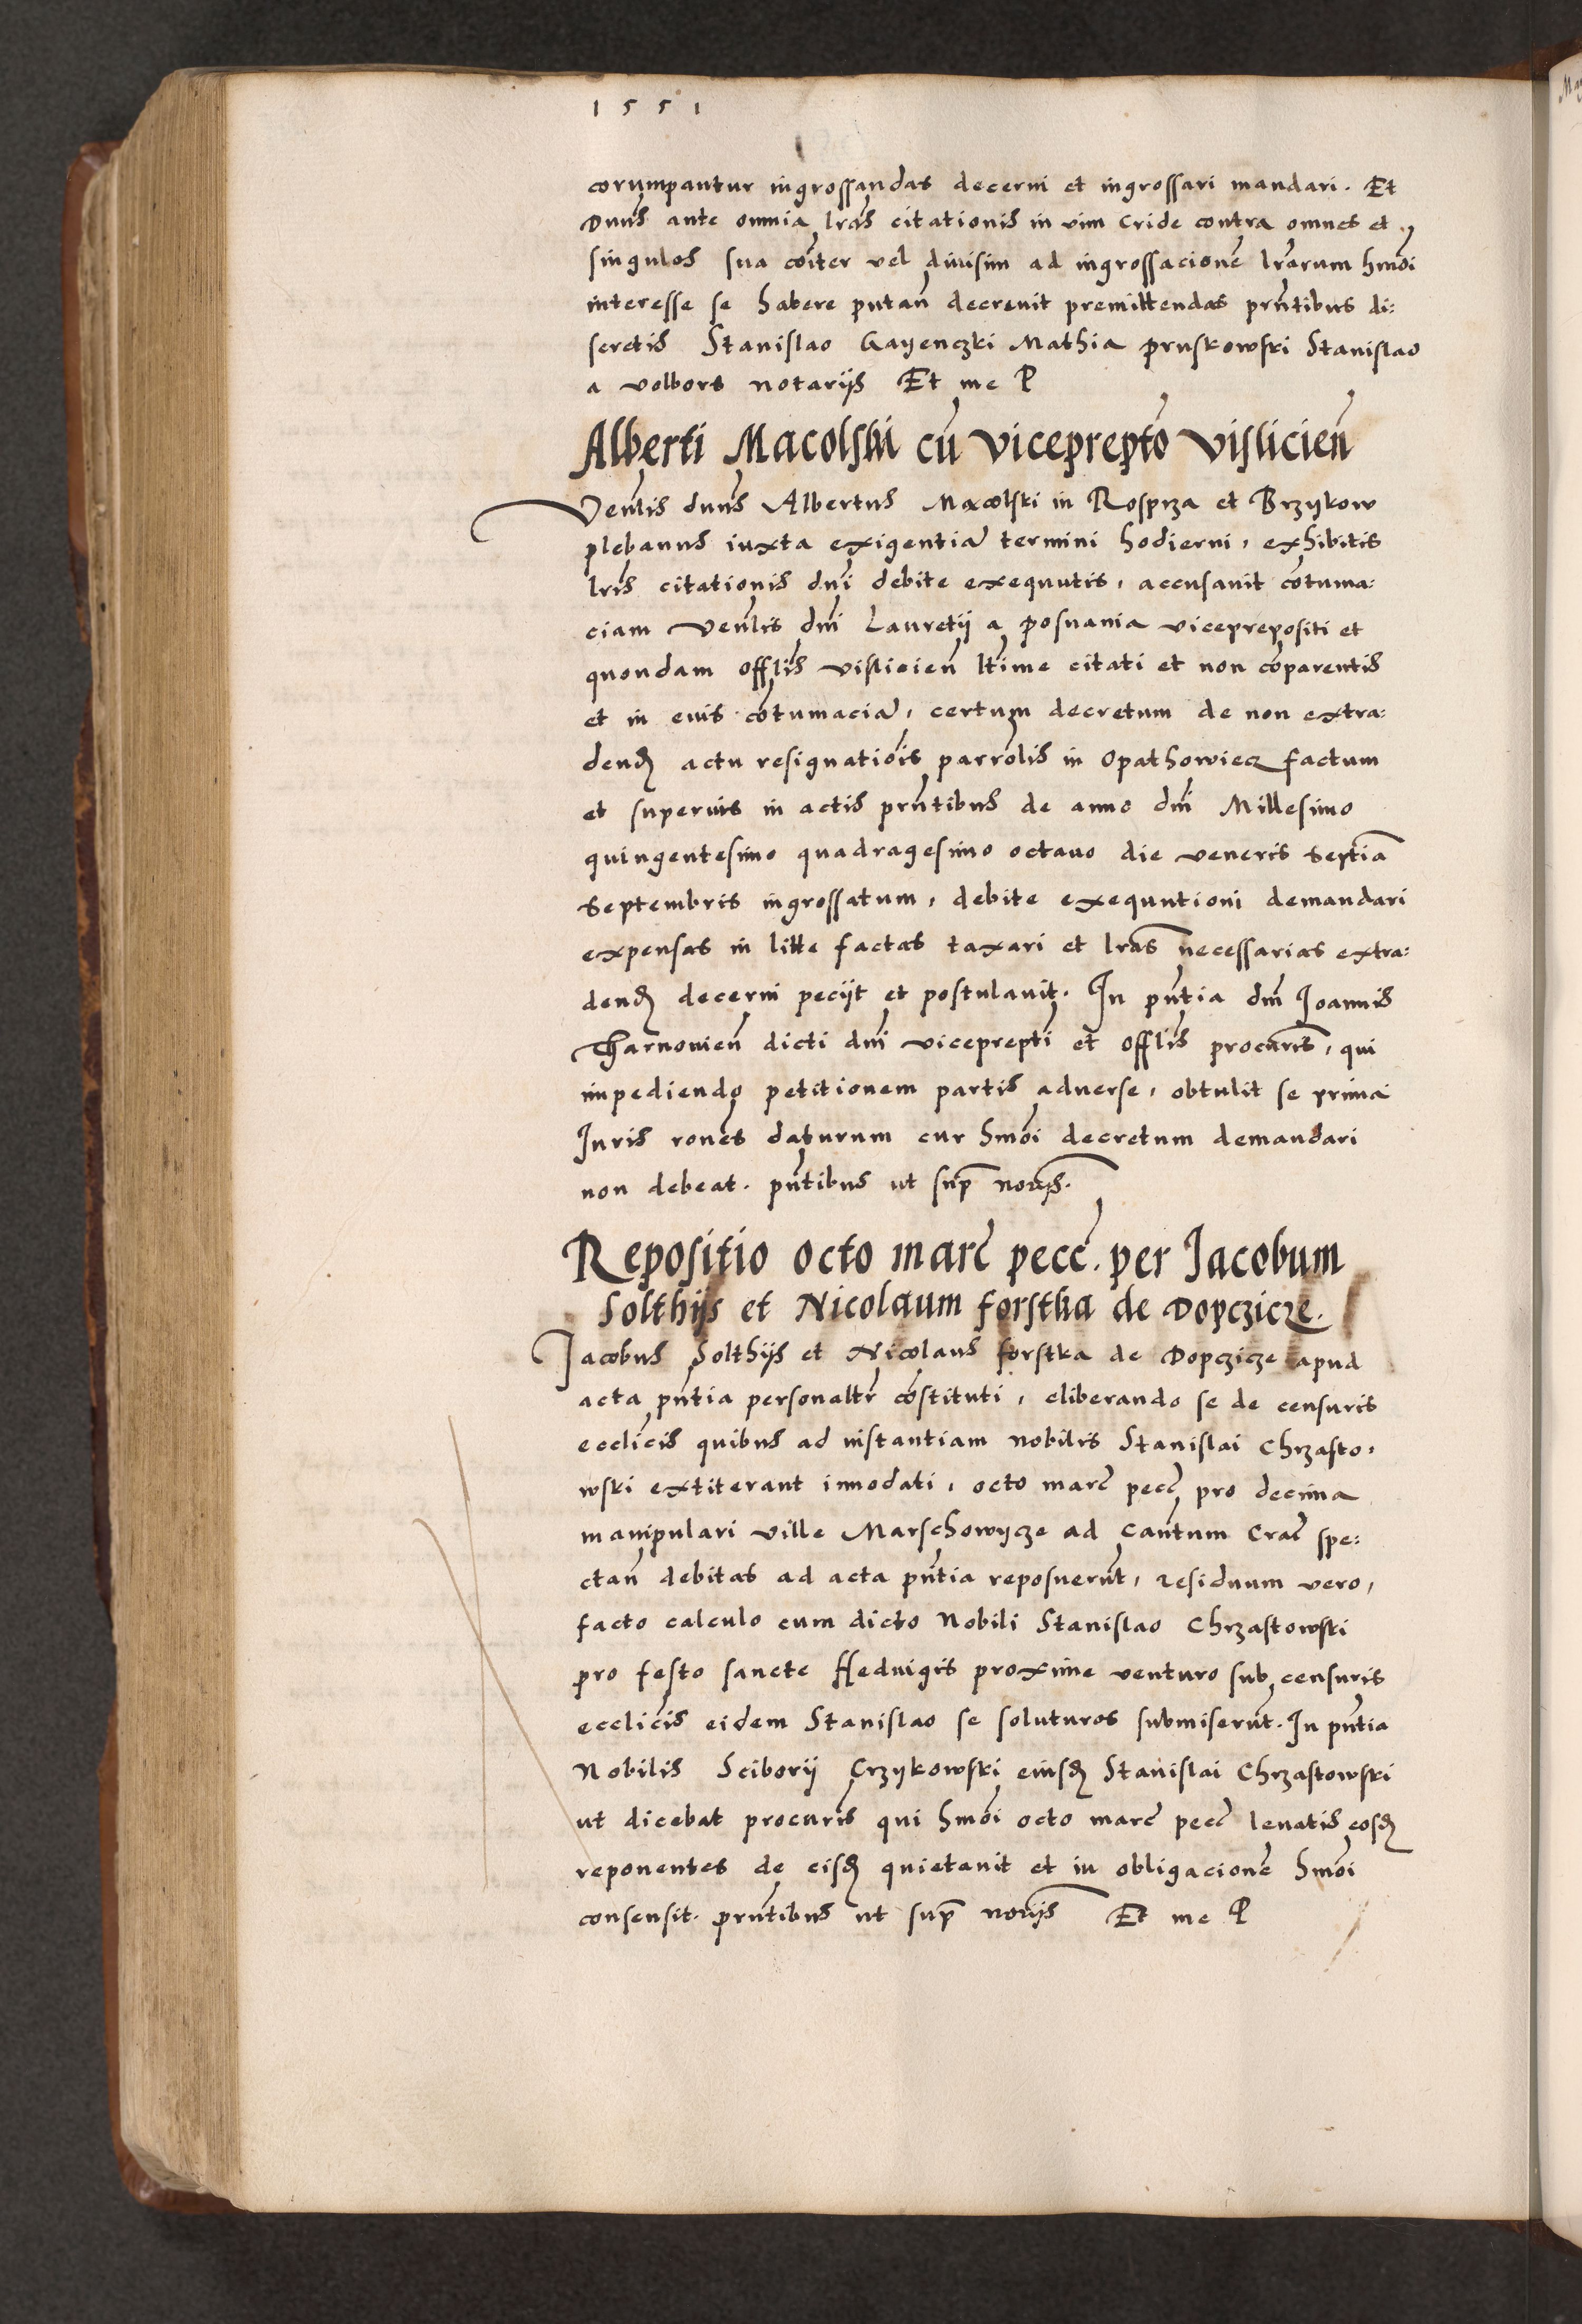 1551
corumpantur ingrossandas decerni et ingrossari mandari. Et
Dnus ante omnia lras citationis in vim Cride contra omnes et
singulos sua coiter vel diuisim ad ingrossacione lrarum hmoi
interesse se habere putan decreuit premittendas prntibus di:
scretis Stanislao Gayenczki Mathia pruskowski Stanislao
a volbors notarijs Et me P
Alberti Macolski cu viceprepto vislicien
Venlis dnus Albertus Macolski in Rosprza et Brzykow
plebanus iuxta exigentia termini hodierni, exhibitis
lris citationis dni debite exequutis, accusauit cotuma:
ciam Venlis dni Lauretij a posnania viceprepositi et
quondam offlis visliciен ltime citati et non coparentis
et in euis cotumacia, certum decretum de non extra:
dend actu resignatiois parrolis in Opathowiecz factum
et superuis in actis prntibus de anno dni Millesimo
quingentesimo quadragesimo octauo die veneris septia
septembris ingrossatum, debite exequutioni demandari
expensas in litte factas taxari et lras necessarias extra:
dend decerni pecijt et postulauit. In pntia dni Joannis
Tharnouien dicti dni viceprepti et offlis procuris, qui
impediendo petitionem partis aduerse, obtulit se prima
Juris rones daturum cur hmoi decretum demandari
non debeat. pntibus ut sup norijs.
Repositio octo marc pecc. per Jacobum
Solthijs et Nicolaum forstka de Dopczicze.
Jacobus Solthijs et Nicolaus forstka de Dopczicze apud
acta pntia personaltr costituti, eliberando se de censuris
ecclicis quibus ad instantiam nobilis Stanislai Chrzasto,
wski extiterant innodati, octo marc pecc pro decima
manipulari ville Marschowycze ad Cantum Crac spe:
ctan debitas ad acta pntia reposuerut, residuum vero,
facto calculo cum dicto Nobili Stanislao Chrzastowski
pro festo sancte Hedvigis proxime venturo sub censuris
ecclicis eidem Stanislao se soluturos submiserut. In pntia
Nobilis Sciborij Crzykowski eiusd Stanislai Chrzastowski
ut dicebat procuris qui hmoi octo marc pecc leuatis eosd
reponentes de eisd quietauit et in obligacione hmoi
consensit. prntibus ut sup norijs Et me P